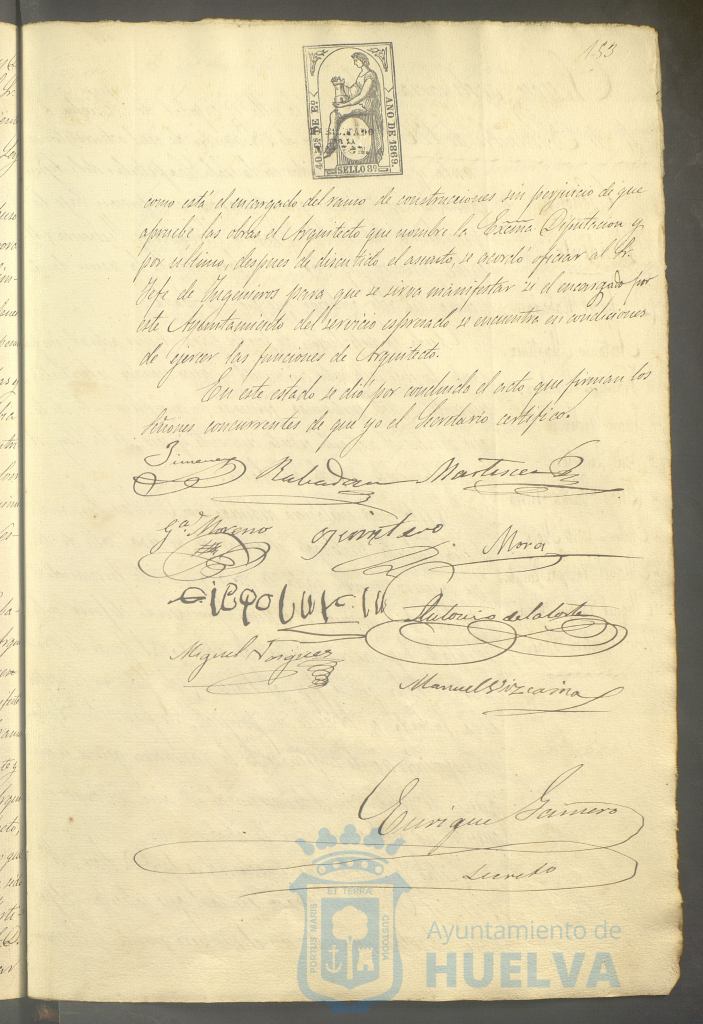 153
40 Cs. DE Eº
AÑO DE 1869.
SELLO 8º
como está el encargado del ramo de construcciones sin perjuicio de que
apruebe las obras el Arquitecto que nombre la Excma Diputacion y
por ultimo, despues de discutido el asunto, se acordó oficiar al Sr.
Jefe de Ingenieros para que se sirva manifestar si el encargado por
este Ayuntamiento del servicio espresado se encuentra en condiciones
de ejercer las funciones de Arquitecto.
En este estado se dió por concluido el acto que firman los
Señores concurrentes de que yo el Secretario certifico.
Jimenez Rabadan Martinez
Ga. Moreno Quintero Mora
Antonio de la Corte
Miguel Vazquez
Manuel Vizcaino
Enrique Gamero
Secreto
ET TERRÆ
PORTUS MARIS
CUSTODIA
Ayuntamiento de
HUELVA